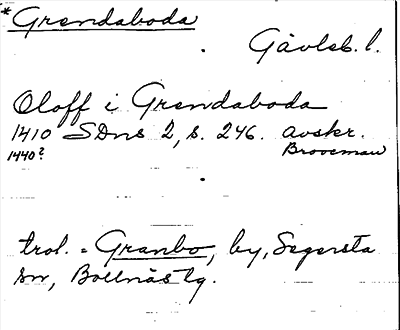 *Grendaboda
Gävleb. l.
Oloff i Grendaboda
1410 SDns 2, s. 246. avskr.
1440? Brooeman
trol. = Granbo, by, Segersta
sn, Bollnäs tg.